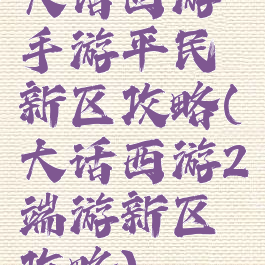 大话西游
手游平民
新区攻略(
大话西游2
端游新区
攻略)